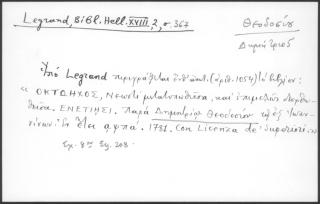 Legrand, Bibl. Hell. XVIII, 2, σ. 367
Θεοδοσίου
Δημητρίου
Ὑπὸ Legrand περιγράφεται (ἀριθ. 1054) τὸ βιβλίον:
« ΟΚΤΩΗΧΟΣ, Νεωστὶ μετατυπωθεῖσα, καὶ ἐπιμελῶς διορθω-
θεῖσα. ΕΝΕΤΙΗΣΙ. Παρὰ Δημητρίῳ Θεοδοσίου τῷ ἐξ Ἰωαν-
νίνων. Ἐν ἔτει αψπα'. 1781. Con Licenza de' Superiori».
Σχ. 8ον Σελ. 208.